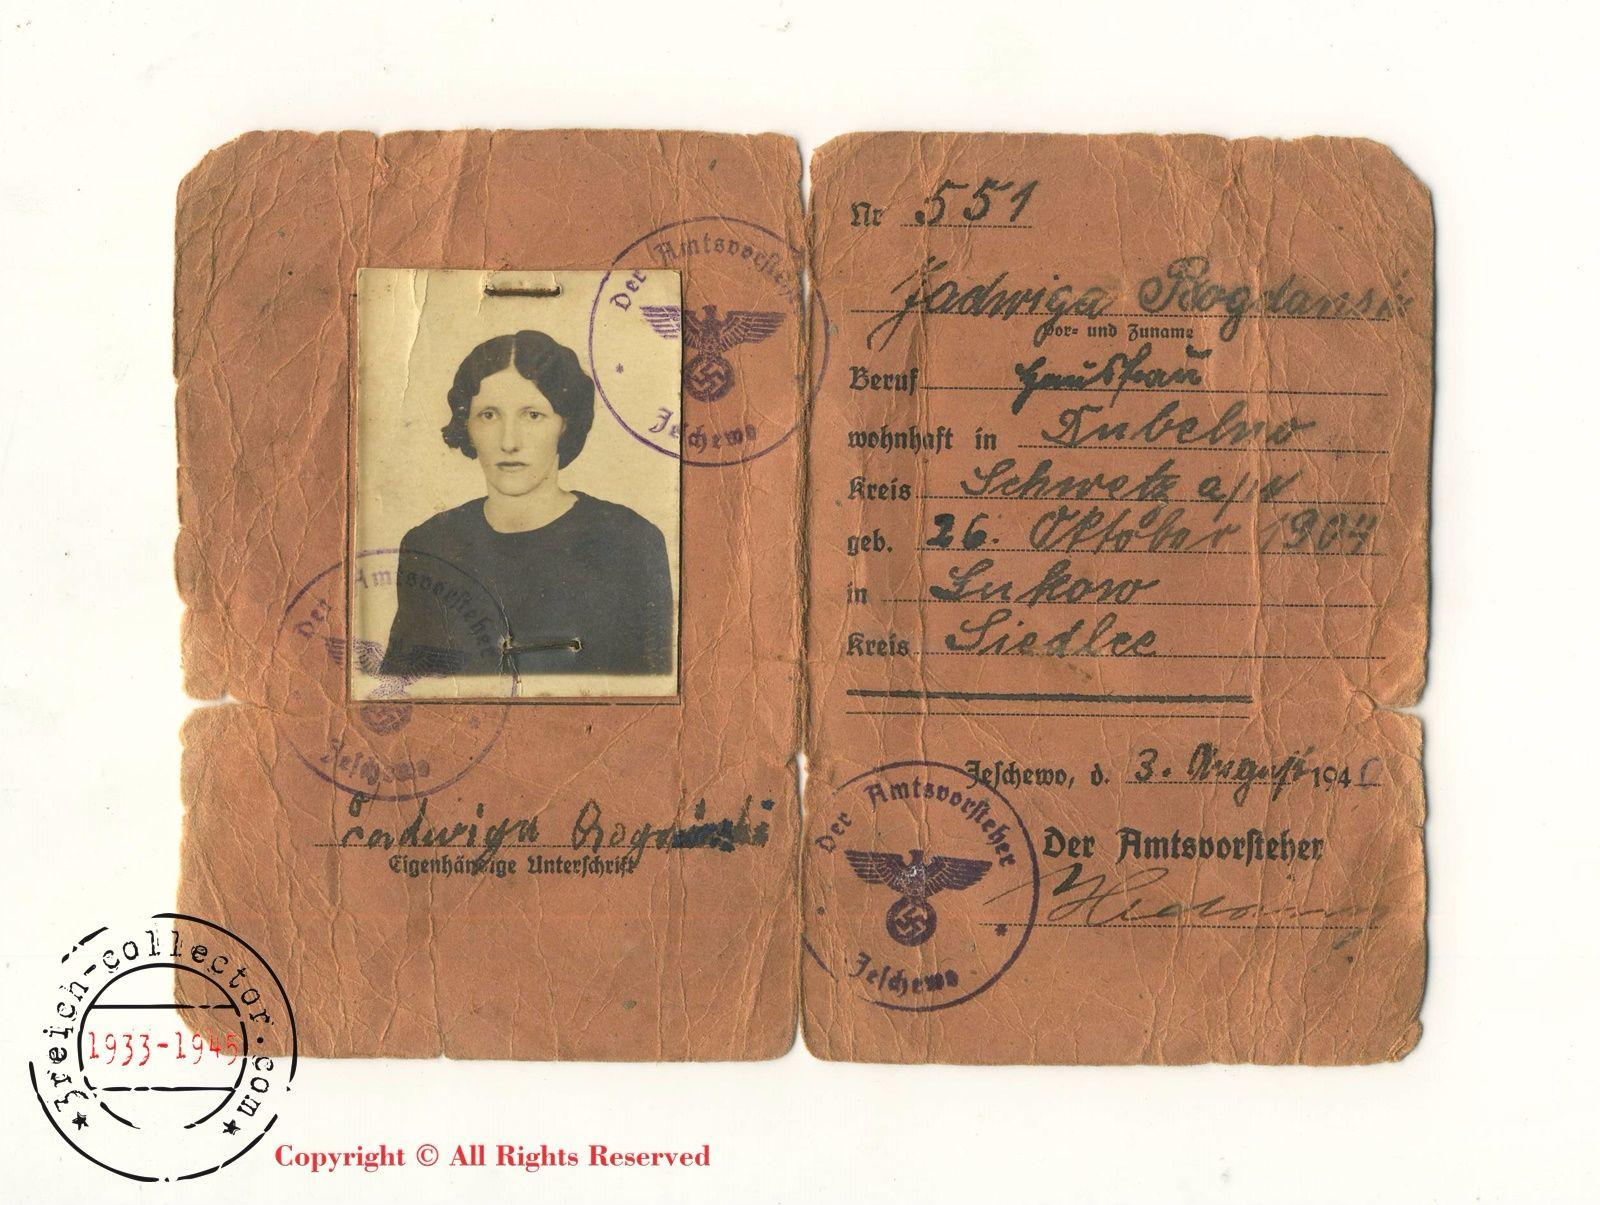 Der Amtsvorsteher
Jeschewo
Der Amtsvorsteher
Jeschewo
Jadwiga
Eigenhändige Unterschrift
Nr 551
Jadwiga Bogdanski
Vor- und Zuname
Beruf Hausfrau
wohnhaft in Dubelno
Kreis Schwetz a/W
geb. 26. Oktober 1904
in Lukow
Kreis Siedlce
Jeschewo, d. 3. August 1940
Der Amtsvorsteher
Der Amtsvorsteher
Jeschewo
3reich-collector.com
1933-1945
Copyright © All Rights Reserved